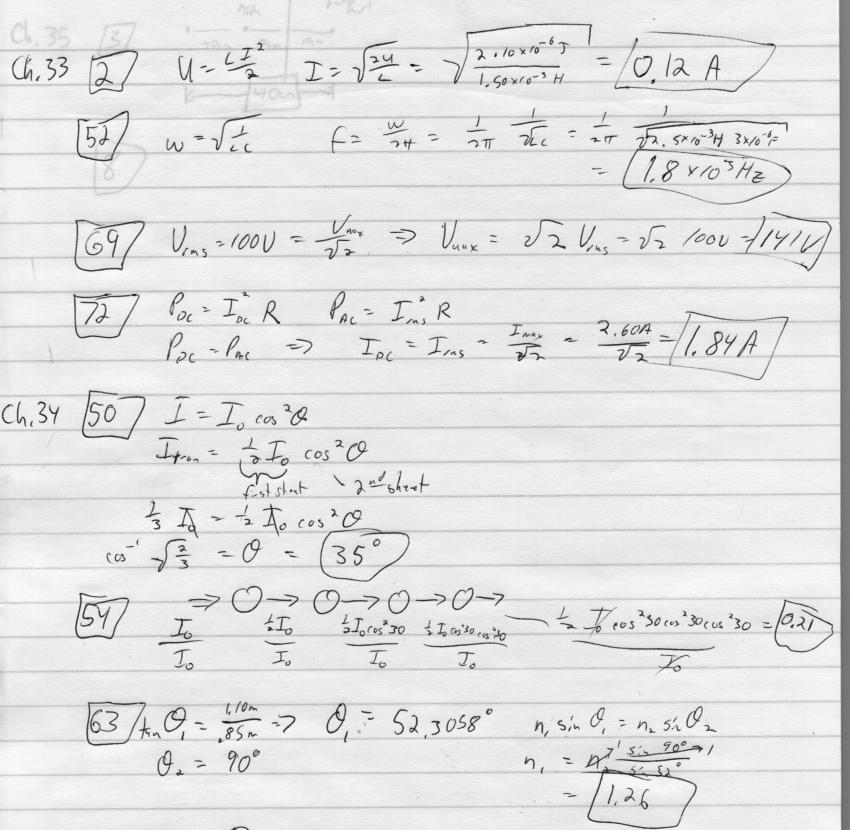 Ch. 35 3
Ch. 33 2 U = LI²/2 I = √(2U/L) = √(2.10x10⁻⁶ J / 1.50x10⁻³ H) = 0.12 A
40cm
52 w = √(1/LC) f = w/2π = 1/2π 1/√LC = 1/2π 1/√(2.5x10⁻³H 3x10⁻⁶F)
8 = 1.8 x10³ Hz
69 Vrms = 100V = Vmax/√2 ⇒ Vmax = √2 Vrms = √2 100V = 141V
72 P_DC = I_DC² R P_AC = I_rms² R
P_DC = P_AC ⇒ I_DC = I_rms = Imax/√2 = 2.60A/√2 = 1.84 A
Ch. 34 50 I = I₀ cos²θ
Itran = ½ I₀ cos²θ
first sheet 2nd sheet
⅓ I₀ = ½ I₀ cos²θ
cos⁻¹ √(2/3) = θ = 35°
54 ⇒ O → O → O → O →
I₀/I₀ ½I₀/I₀ ½I₀cos²30/I₀ ½I₀cos²30cos²30/I₀ ½ I₀ cos²30cos²30cos²30/I₀ = 0.21
63 tan θ₁ = 1.10m/.85m ⇒ θ₁ = 52.3058° n₁ sin θ₁ = n₂ sin θ₂
θ₂ = 90° n₁ = n₂ sin 90°/sin 52°
= 1.26